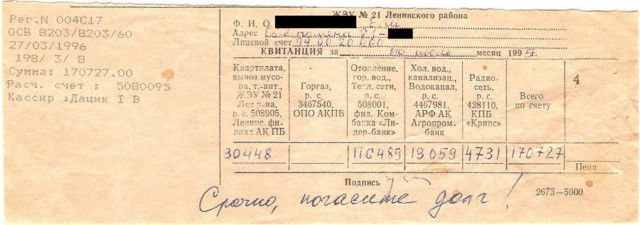 Рег.N 004С17
ОСВ 8203/8203/60
27/03/1996
198/ 3/ 8
Сумма: 170727.00
Расч. счет : 5080095
Кассир :Дацик Т В
ЖЭУ № 21 Ленинского района
Ф. И. О.
Адрес
Лицевой счет
КВИТАНЦИЯ за месяц 199
Квартплата, вывоз мусора, т.-ант. ЖЭУ № 21 Лен р-на, р-с. 508905, Ленинс. филиал АК ПБ
Горгаз, р. с. 3467540, ОПО АКПБ
Отопление, гор. вод., Тепл. сети, р. с. 508001, фил. Комбанка «Лидер-банк»
Хол. вод., канализац., Водоканал, р. с. 4467981, АРФ АК Агропромбанк
Радиосеть, р. с. 428110, КПБ «Крипс»
Всего по счету
4
30448 116489 19059 4731 170727
Пени
Подпись
2673—5000
Срочно, погасите долг!